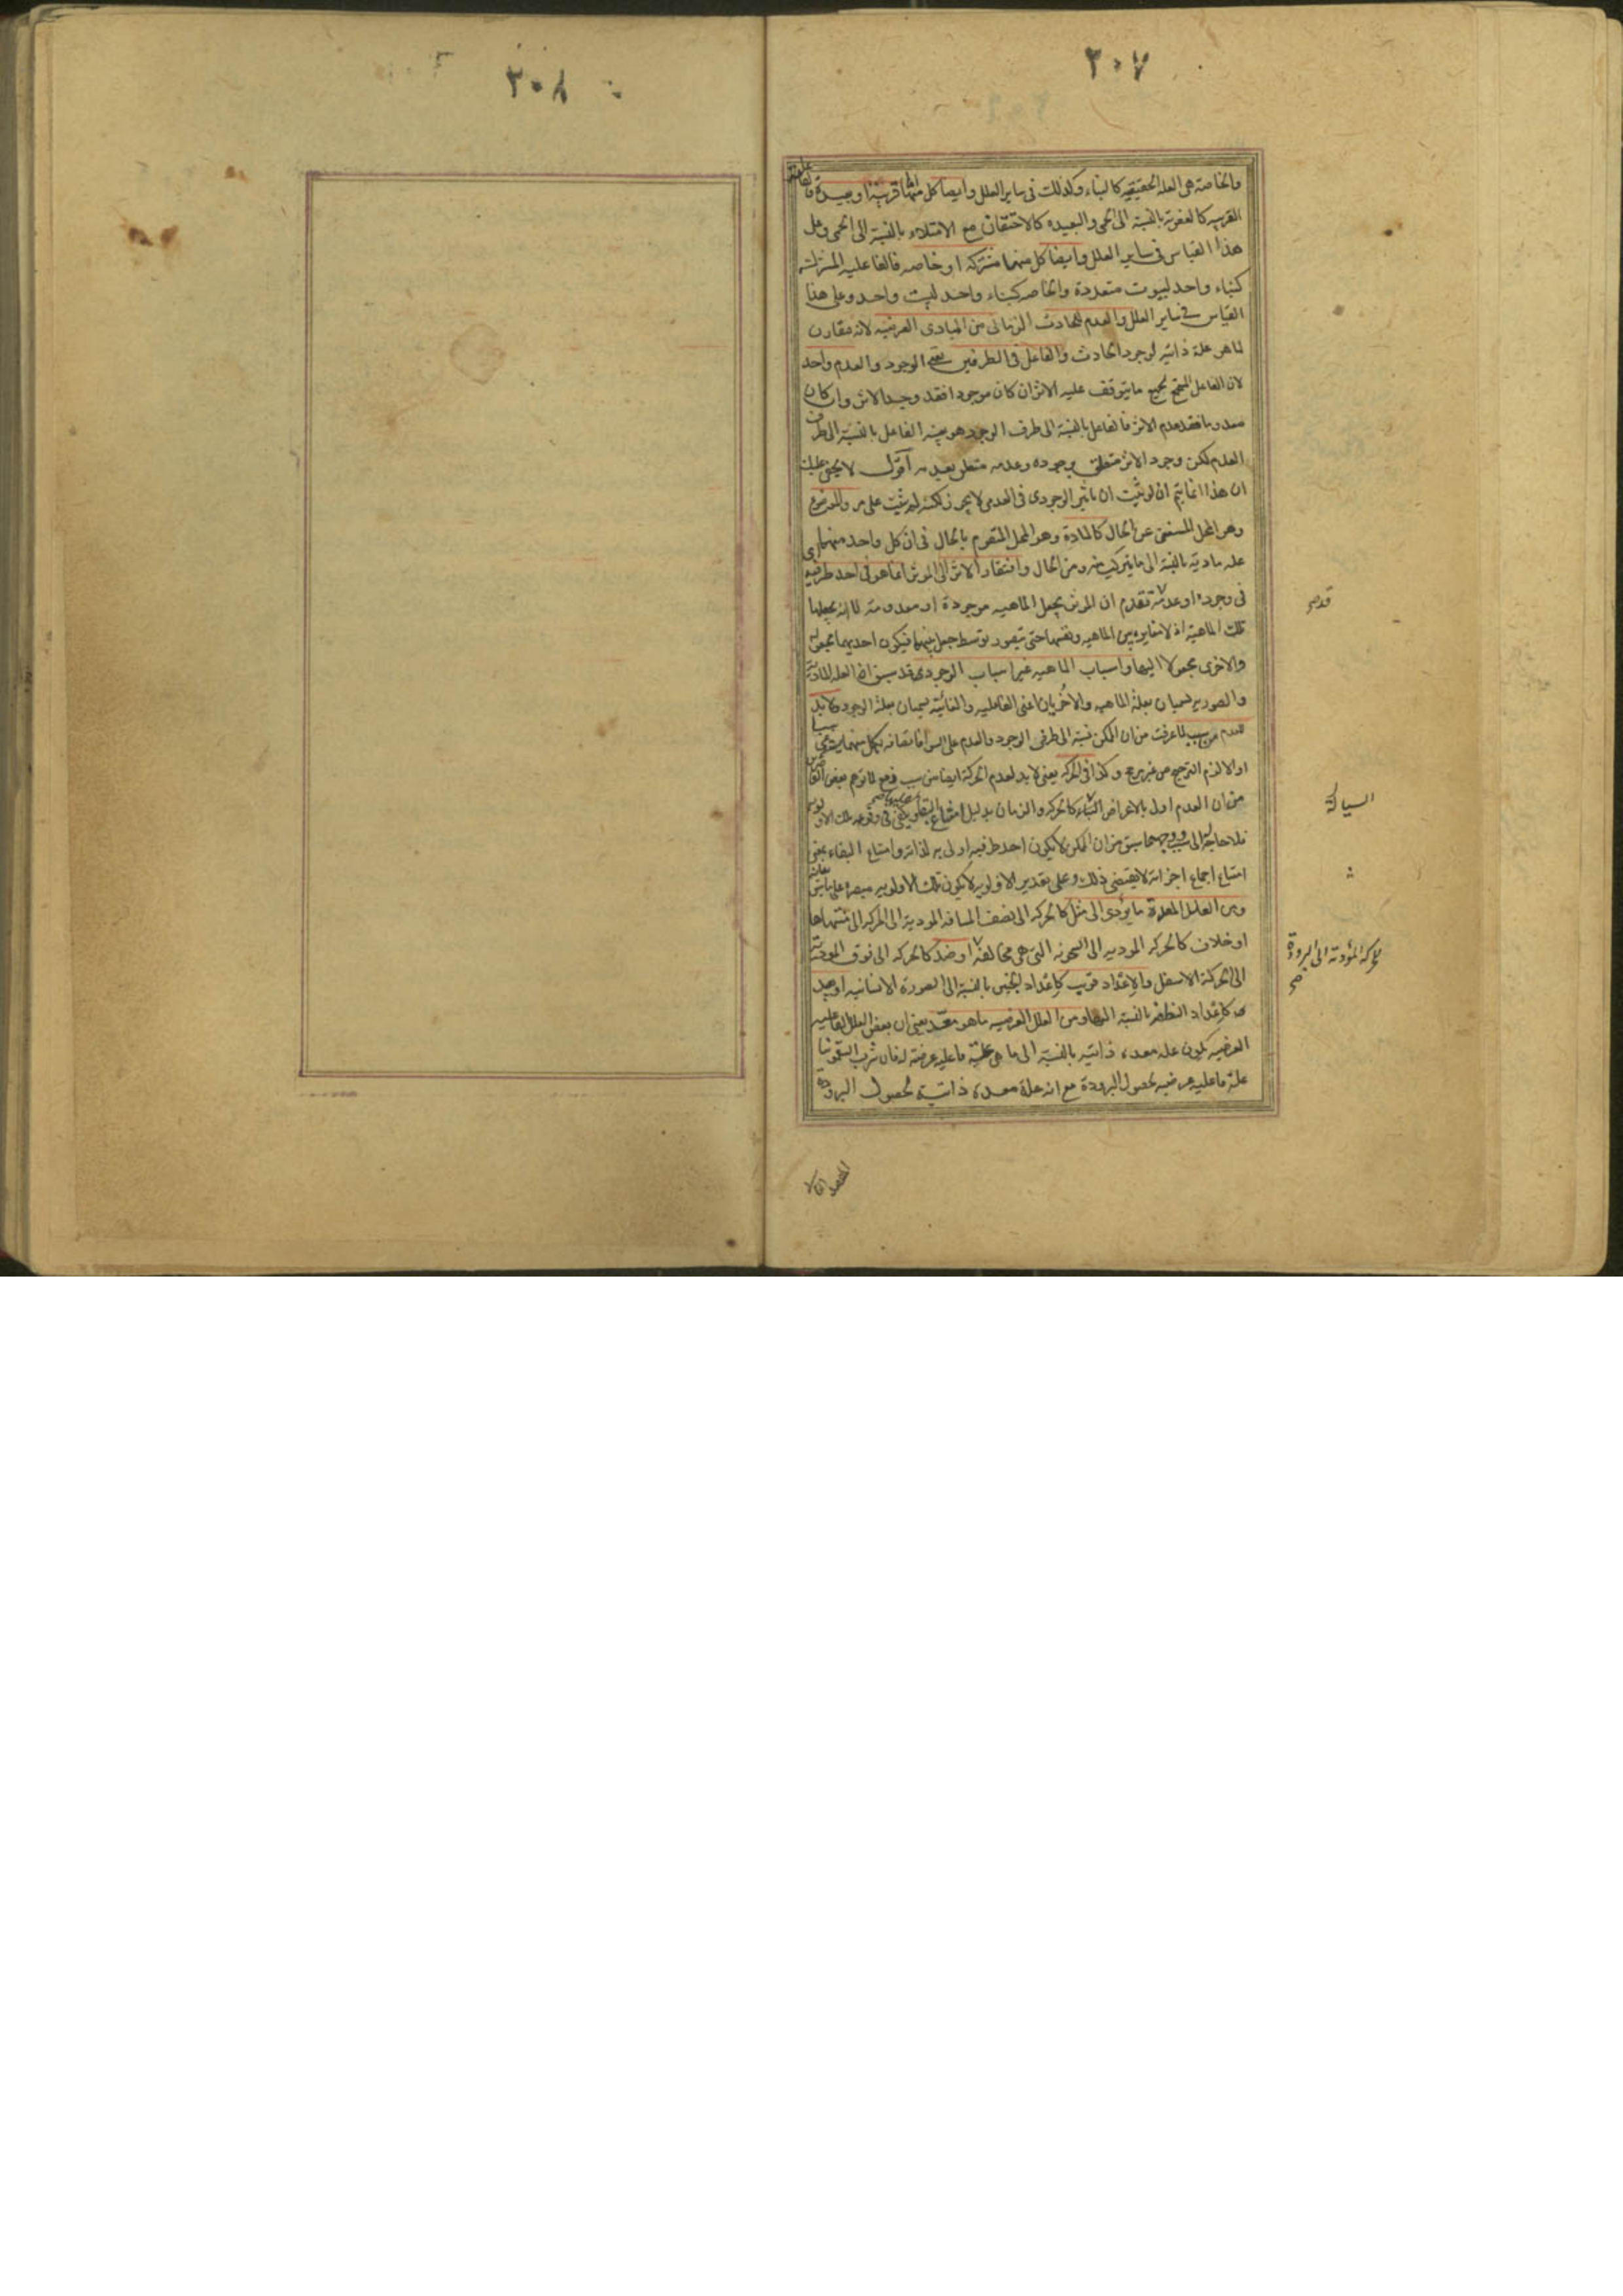 ٣٠٧
والخاصة هى العلة الحقيقية كالبناء وكذلك فى ساير العلل وايضا كل منها قريبة او بعيدة فالفاعلية
القريبة كالعفونة بالنسبة الى الحمى والبعيدة كالاحتقان مع الامتلاء بالنسبة الى الحمى وعلى
هذا القياس فى ساير العلل وايضا كل منهما مشتركة او خاصة فالفاعلية المشتركة
كبناء واحد لبيوت متعددة والخاصة كبناء واحد لبيت واحد وعلى هذا
القياس فى ساير العلل والعدم للحادث الزمانى من المبادى العرضية لانه مقارن
لما هو علة ذاتية لوجود الحادث والفاعل فى الطرفين يعنى الوجود والعدم واحد
لان الفاعل المستجمع لجميع ما يتوقف عليه الاثر ان كان موجودا فقد وجد الاثر وان كان
معدوما فقد عدم الاثر فالفاعل بالنسبة الى طرف الوجود هو بعينه الفاعل بالنسبة الى طرف
العدم لكن وجود الاثر متعلق بوجوده وعدمه متعلق بعدمه اقول لا يخفى عليك
ان هذا انما يتم ان لو ثبت ان تاثير الوجودى فى العدمى لا يجوز لكنه لم يثبت على ما مر والموضوع
وهو المحل المستغنى عن الحال كالمادة وهو المحل المتقوم بالحال فى ان كل واحد منهما
علة مادية بالنسبة الى ما يتركب منه ومن الحال وافتقار الاثر الى المؤثر انما هو فى احد طرفيه
فى وجوده او عدمه تقدم ان المؤثر يجعل الماهية موجودة او معدومة لا انه يجعلها
تلك الماهية اذ لا مغايرة بين الماهية ونفسها حتى يتصور توسط جعل بينهما فيكون احديهما مجعولة
والاخرى مجعولا اليها واسباب الماهية غير اسباب الوجود وقد سبق ان العلة المادية
والصورية تسميان بعلة الماهية والاخريان اعنى الفاعلية والغائية تسميان بعلة الوجود ولا بد
للعدم من سبب لما عرفت من ان الممكن نسبته الى طرفى الوجود والعدم على السواء فاتصافه بكل منهما يستدعى سببا
والا لزم الترجح من غير مرجح وكذا فى الحركة يعنى لا بد لعدم الحركة ايضا من سبب دفع لما توهم بعض القاصرين
من ان العدم اولى بالاعراض كالحركة والزمان بدليل امتناع البقاء عليها ويكفى فى وقوعه تلك الاولوية
فلا حاجة الى سبب ووجهه ما سبق من ان الممكن لا يكون احد طرفيه اولى به لذاته وامتناع البقاء بمعنى
امتناع اجتماع اجزائه لا يقتضى ذلك وعلى تقدير الاولوية لا يكون تلك الاولوية
ومن العلل المعدة ما يؤدى الى مثل كالحركة الى نصف المسافة المودية الى الحركة الى منتهاها
او خلاف كالحركة المودية الى السخونة التى هى مخالفة او ضد كالحركة الى فوق المودية
الى الحركة الاسفل والاعداد قريب كاعداد الجنين بالنسبة الى الصورة الانسانية او بعيد
كاعداد النطفة بالنسبة اليها ومن العلل العرضية ما هو معد يعنى ان بعض العلل الفاعلية
العرضية تكون علة معدة ذاتية بالنسبة الى ما هى علة فاعلية عرضية له فان شرب السقمونيا
علة فاعلية عرضية لحصول البرودة مع انه علة معدة ذاتية لحصول البرودة
قد صح
السيالة
للحركة المؤدية الى البرودة
صح
المقصد الثانى
٣٠٨